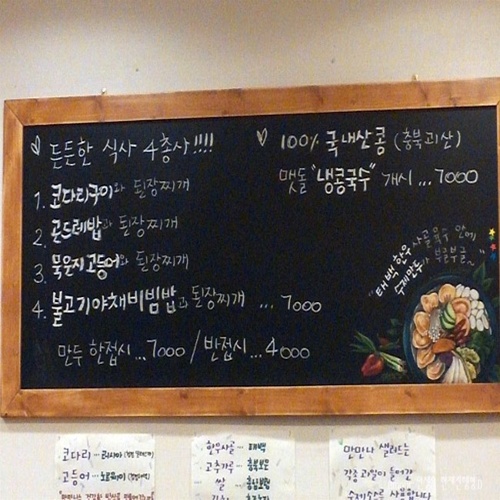 든든한 식사 4총사!!!!
1. 코다리구이와 된장찌개
2. 곤드레밥과 된장찌개
3. 묵은지고등어와 된장찌개
4. 불고기야채비빔밥과 된장찌개 ... 7000
만두 한접시 ... 7000 / 반접시 ... 4000
100% 국내산콩 (충북괴산)
맷돌 "냉콩국수" 개시 ... 7000
"태백한우 사골육수 안에
수제만두가 부글부글~"
코다리 ... 러시아
고등어 ... 노르웨이
한우사골 ... 태백
고추가루 ... 충북보은
쌀 ... 충남보령
마만나 샐러드는
각종 과일이 들어간